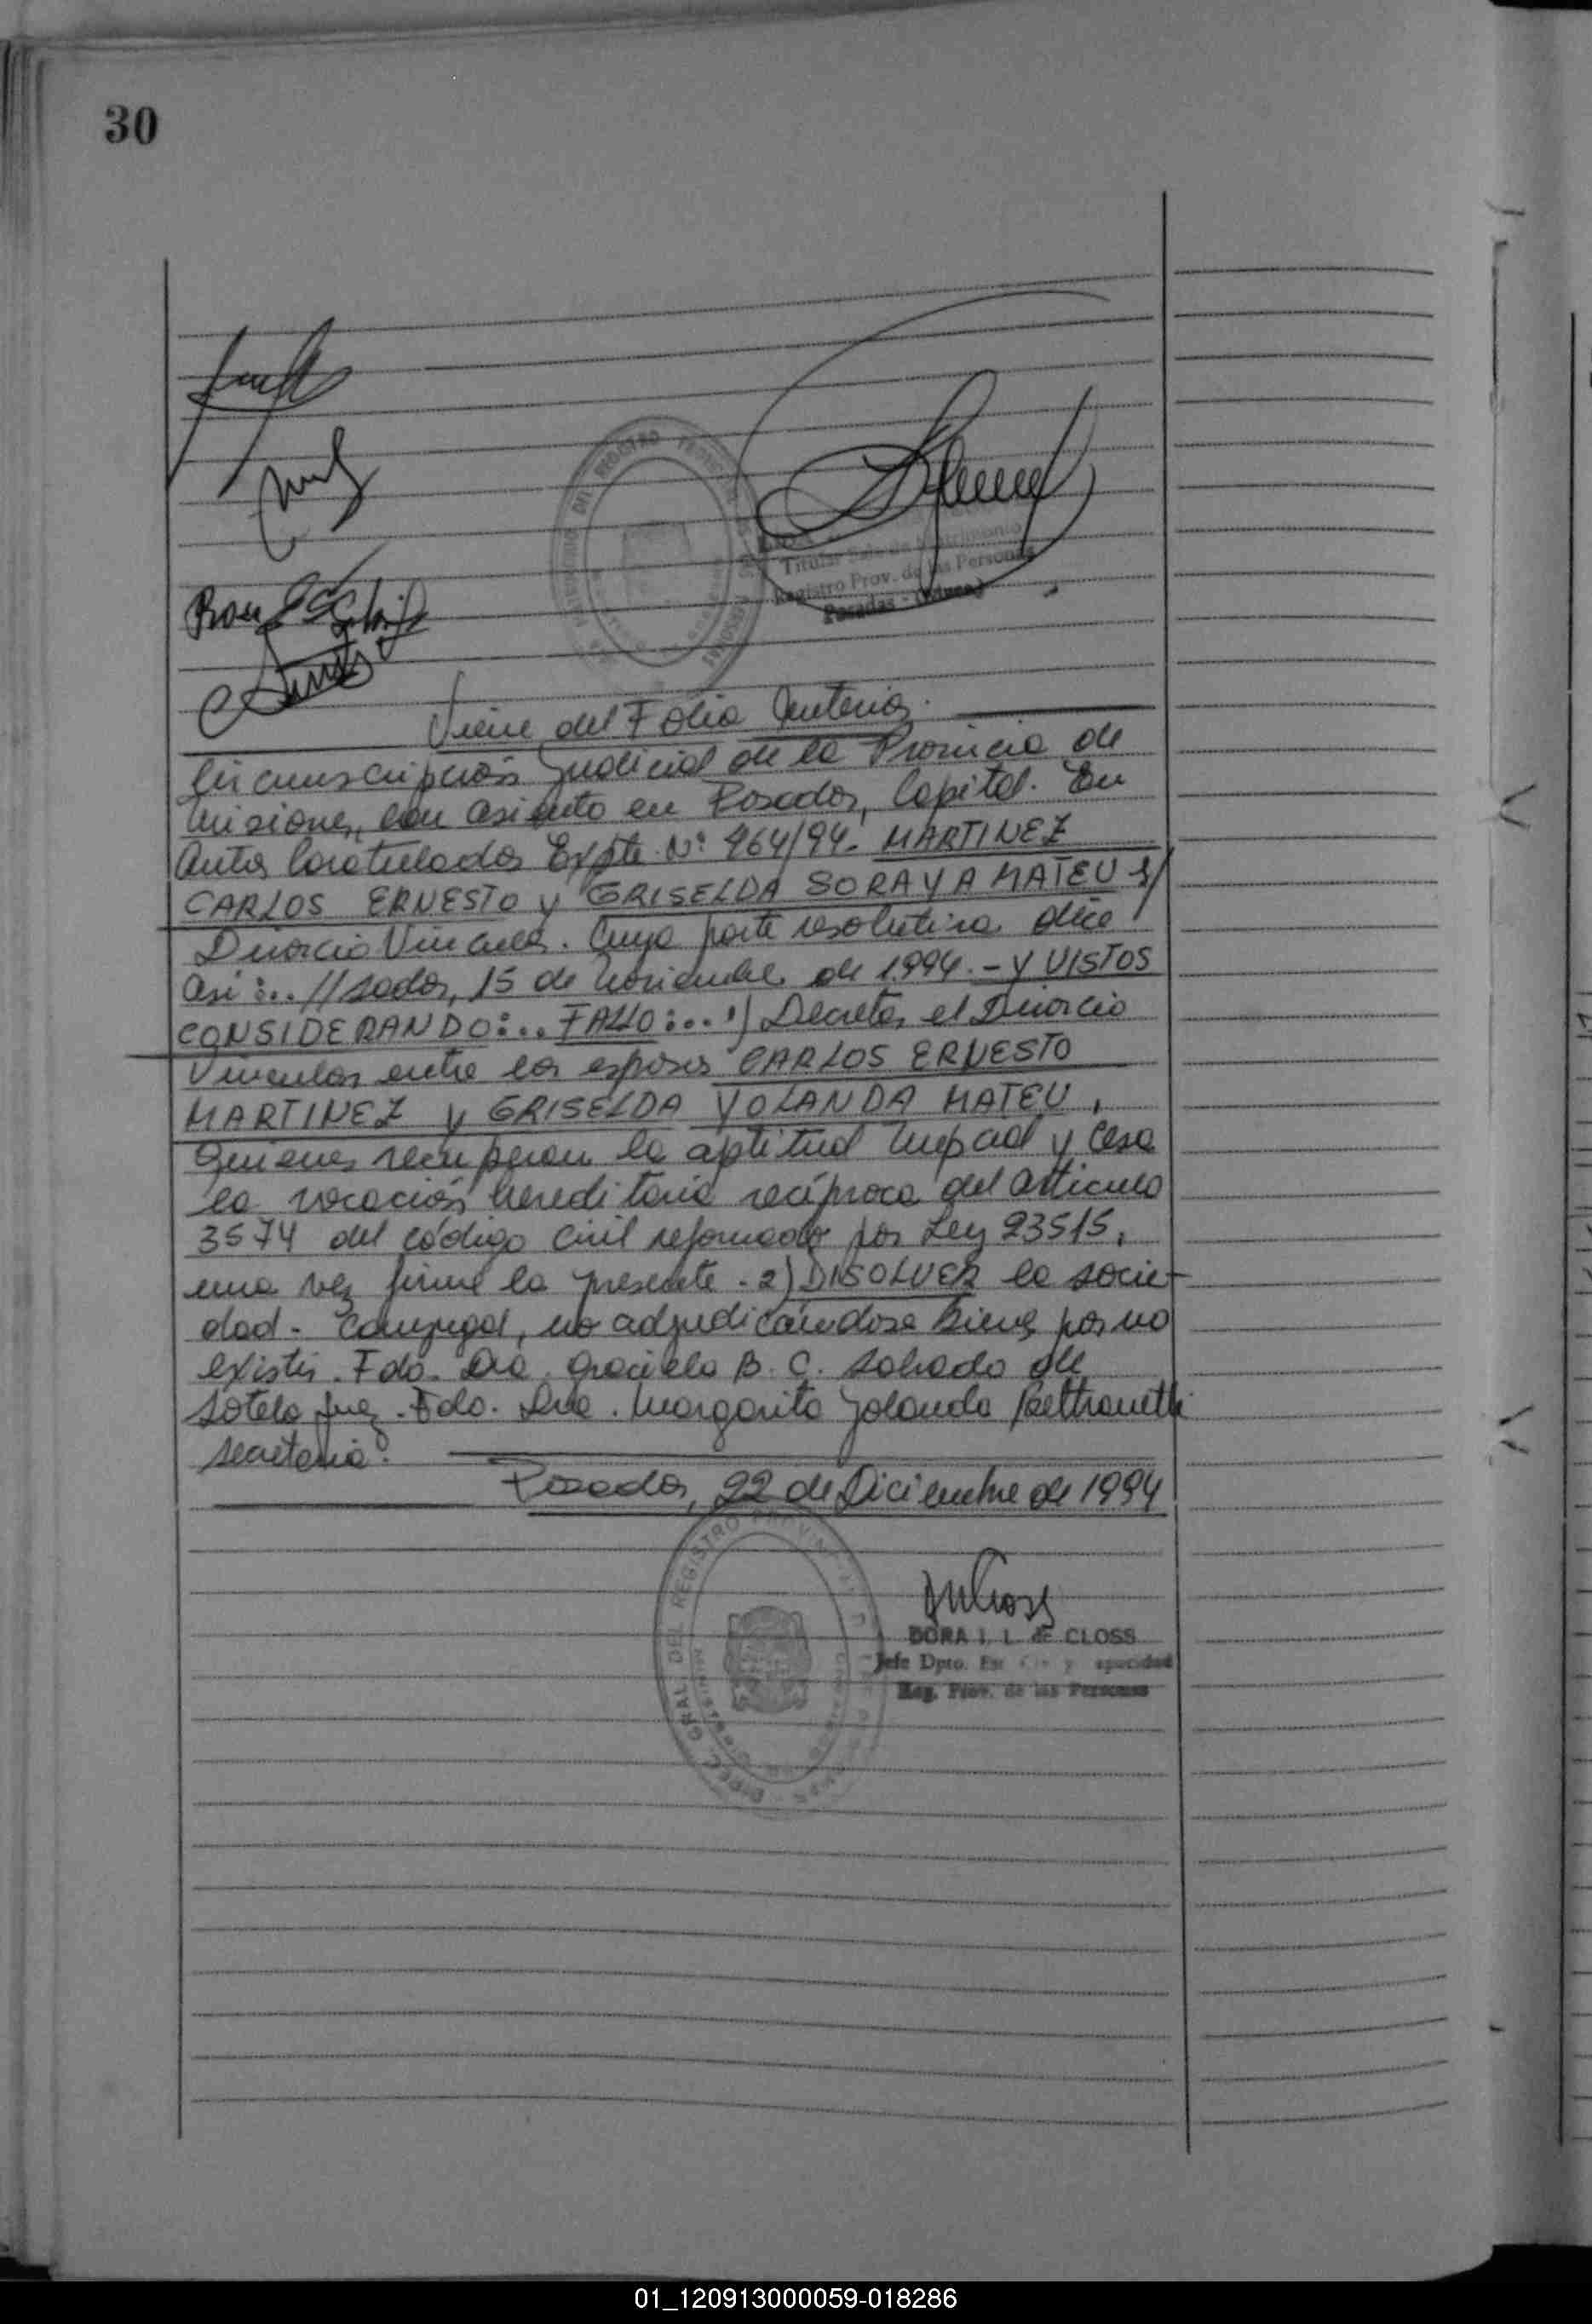 30
Titular Sala de Matrimonio
Registro Prov. de las Personas
Posadas - (Mnes.)
Viene del Folio Anterior.
Circunscripción Judicial de la Provincia de
Misiones, con asiento en Posadas, Capital. En
Autos Caratulados Expte. Nº 464/94. MARTINEZ
CARLOS ERNESTO y GRISELDA SORAYA MATEU s/
Divorcio Vincular. Cuya parte resolutiva dice
Asi:.. //sadas, 15 de Noviembre de 1.994.- Y VISTOS
CONSIDERANDO:.. FALLO:.. 1) Decretar el Divorcio
Vincular entre los esposos CARLOS ERNESTO
MARTINEZ y GRISELDA YOLANDA MATEU,
Quienes recuperan la aptitud Nupcial y Cesa
la vocación hereditaria recíproca del articulo
3574 del código Civil reformado por Ley 23515,
una vez firme la presente. 2) DISOLVER la socie-
dad - Conyugal, no adjudicándose Bienes por no
existir. Fdo. Dra. Graciela B. C. Salvado de
Sotelo Juez. Fdo. Dra. Margarita Yolanda
Secretaria.
Posadas, 22 de Diciembre de 1994
DIREC. GRAL. DEL REGISTRO PROVINCIAL DE LAS PERSONAS
DORA I. L. de CLOSS
Jefe Dpto.
Reg. Prov. de las Personas
01_120913000059-018286